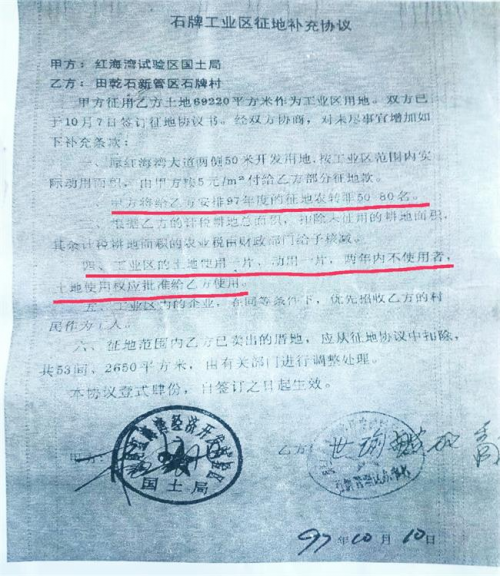 石牌工业区征地补充协议
甲方：红海湾试验区国土局
乙方：田乾石新管区石牌村
甲方征用乙方土地69220平方米作为工业区用地。双方已
于10月7日签订征地协议书。经双方协商，对未尽事宜增加如
下补充条次：
一、原红海湾大道两侧50米开发用地，按工业区范围内实
际动用面积，由甲方按5元/m²付给乙方部分征地款。
甲方将给乙方安排97年度的征地农转非50-80名。
三、根据乙方的计税耕地总面积，扣除未征用的耕地面积，
其余计税耕地面积的农业税由财政部门给予核减。
四、工业区的土地使用一片、动出一片，两年内不使用者，
土地使用权应批准给乙方使用。
五、工业区内的企业，在同等条件下，优先招收乙方的村
民作为工人。
六、征地范围内乙方已卖出的厝地，应从征地协议中扣除，
共53间，2650平方米，由有关部门进行调整处理。
本协议壹式肆份，自签订之日起生效。
甲方：
乙方：
国土局
97年10月10日